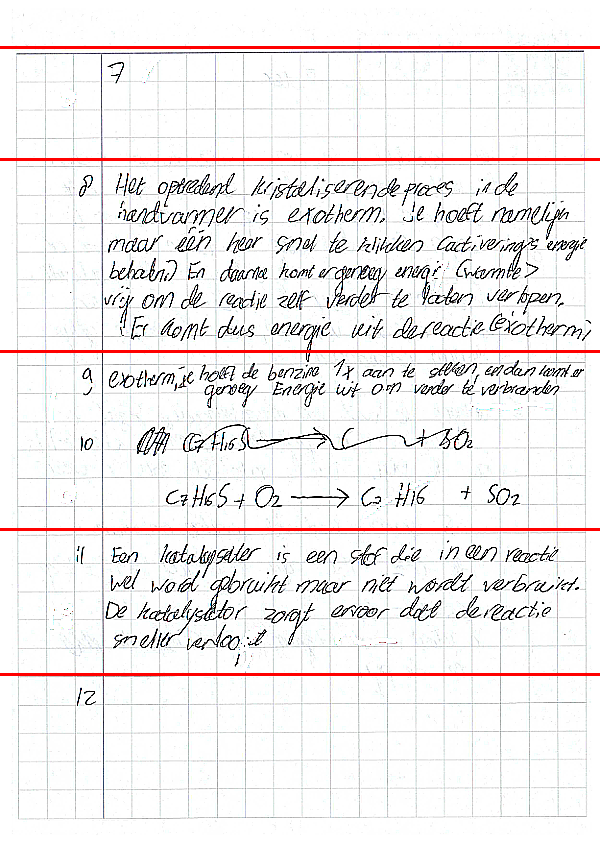 7
8 Het optredend kristaliserende proces in de
handwarmer is exotherm. Je hoeft namelijk
maar één keer snel te klikken (activerings energie
behaln.) En daarna komt er genoeg energi (warmte)
vrij om de reactie zelf verder te laten verlopen.
Er komt dus energie uit de reactie (exotherm)
9 exotherm, je hoeft de benzine 1x aan te steken, en dan komt er
genoeg Energie uit om verder te verbranden
10
C7H16S + O2 → C7 H16 + SO2
11 Een katalysater is een stof die in een reactie
wel word gebruikt maar niet wordt verbruikt.
De katalysator zorgt ervoor dat de reactie
sneller verloopt
12